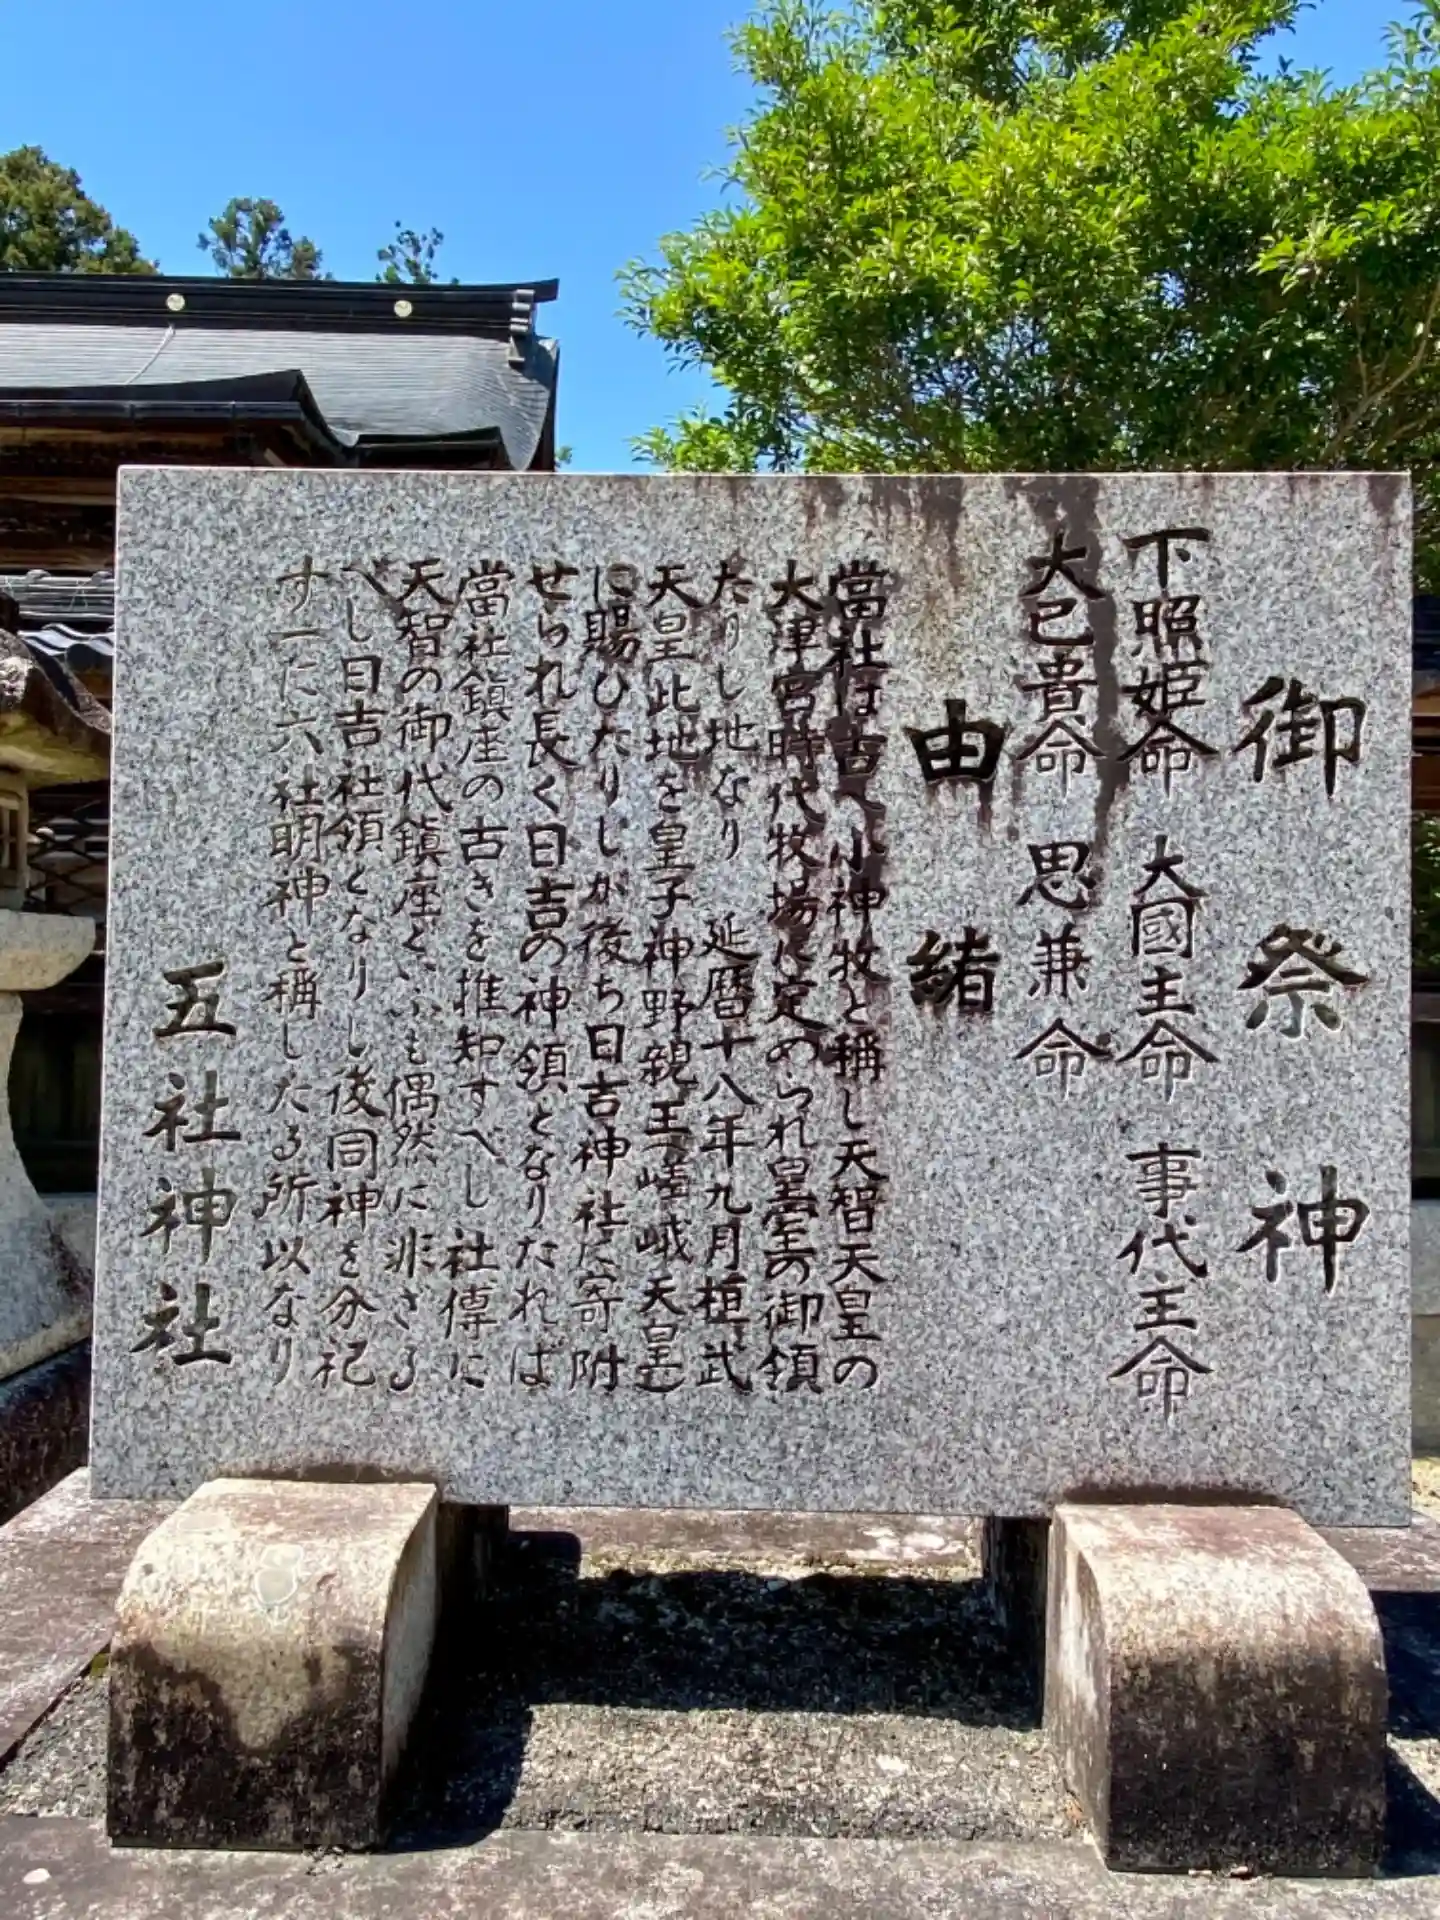 御祭神
下照姫命 大國主命 事代主命
大己貴命 思兼命
由緒
當社は古へ小神牧と稱し天智天皇の
大津宮時代牧場に定められ皇室の御領
たりし地なり 延暦十八年九月桓武
天皇此地を皇子神野親王(嵯峨天皇)
に賜ひたりしが後ち日吉神社に寄附
せられ長く日吉の神領となりたれば
當社鎮座の古きを推知すべし社傳に
天智の御代鎮座といふも偶然に非ざる
べし日吉社領となりし後同神を分祀
す一に六社明神と稱したる所以なり
五社神社